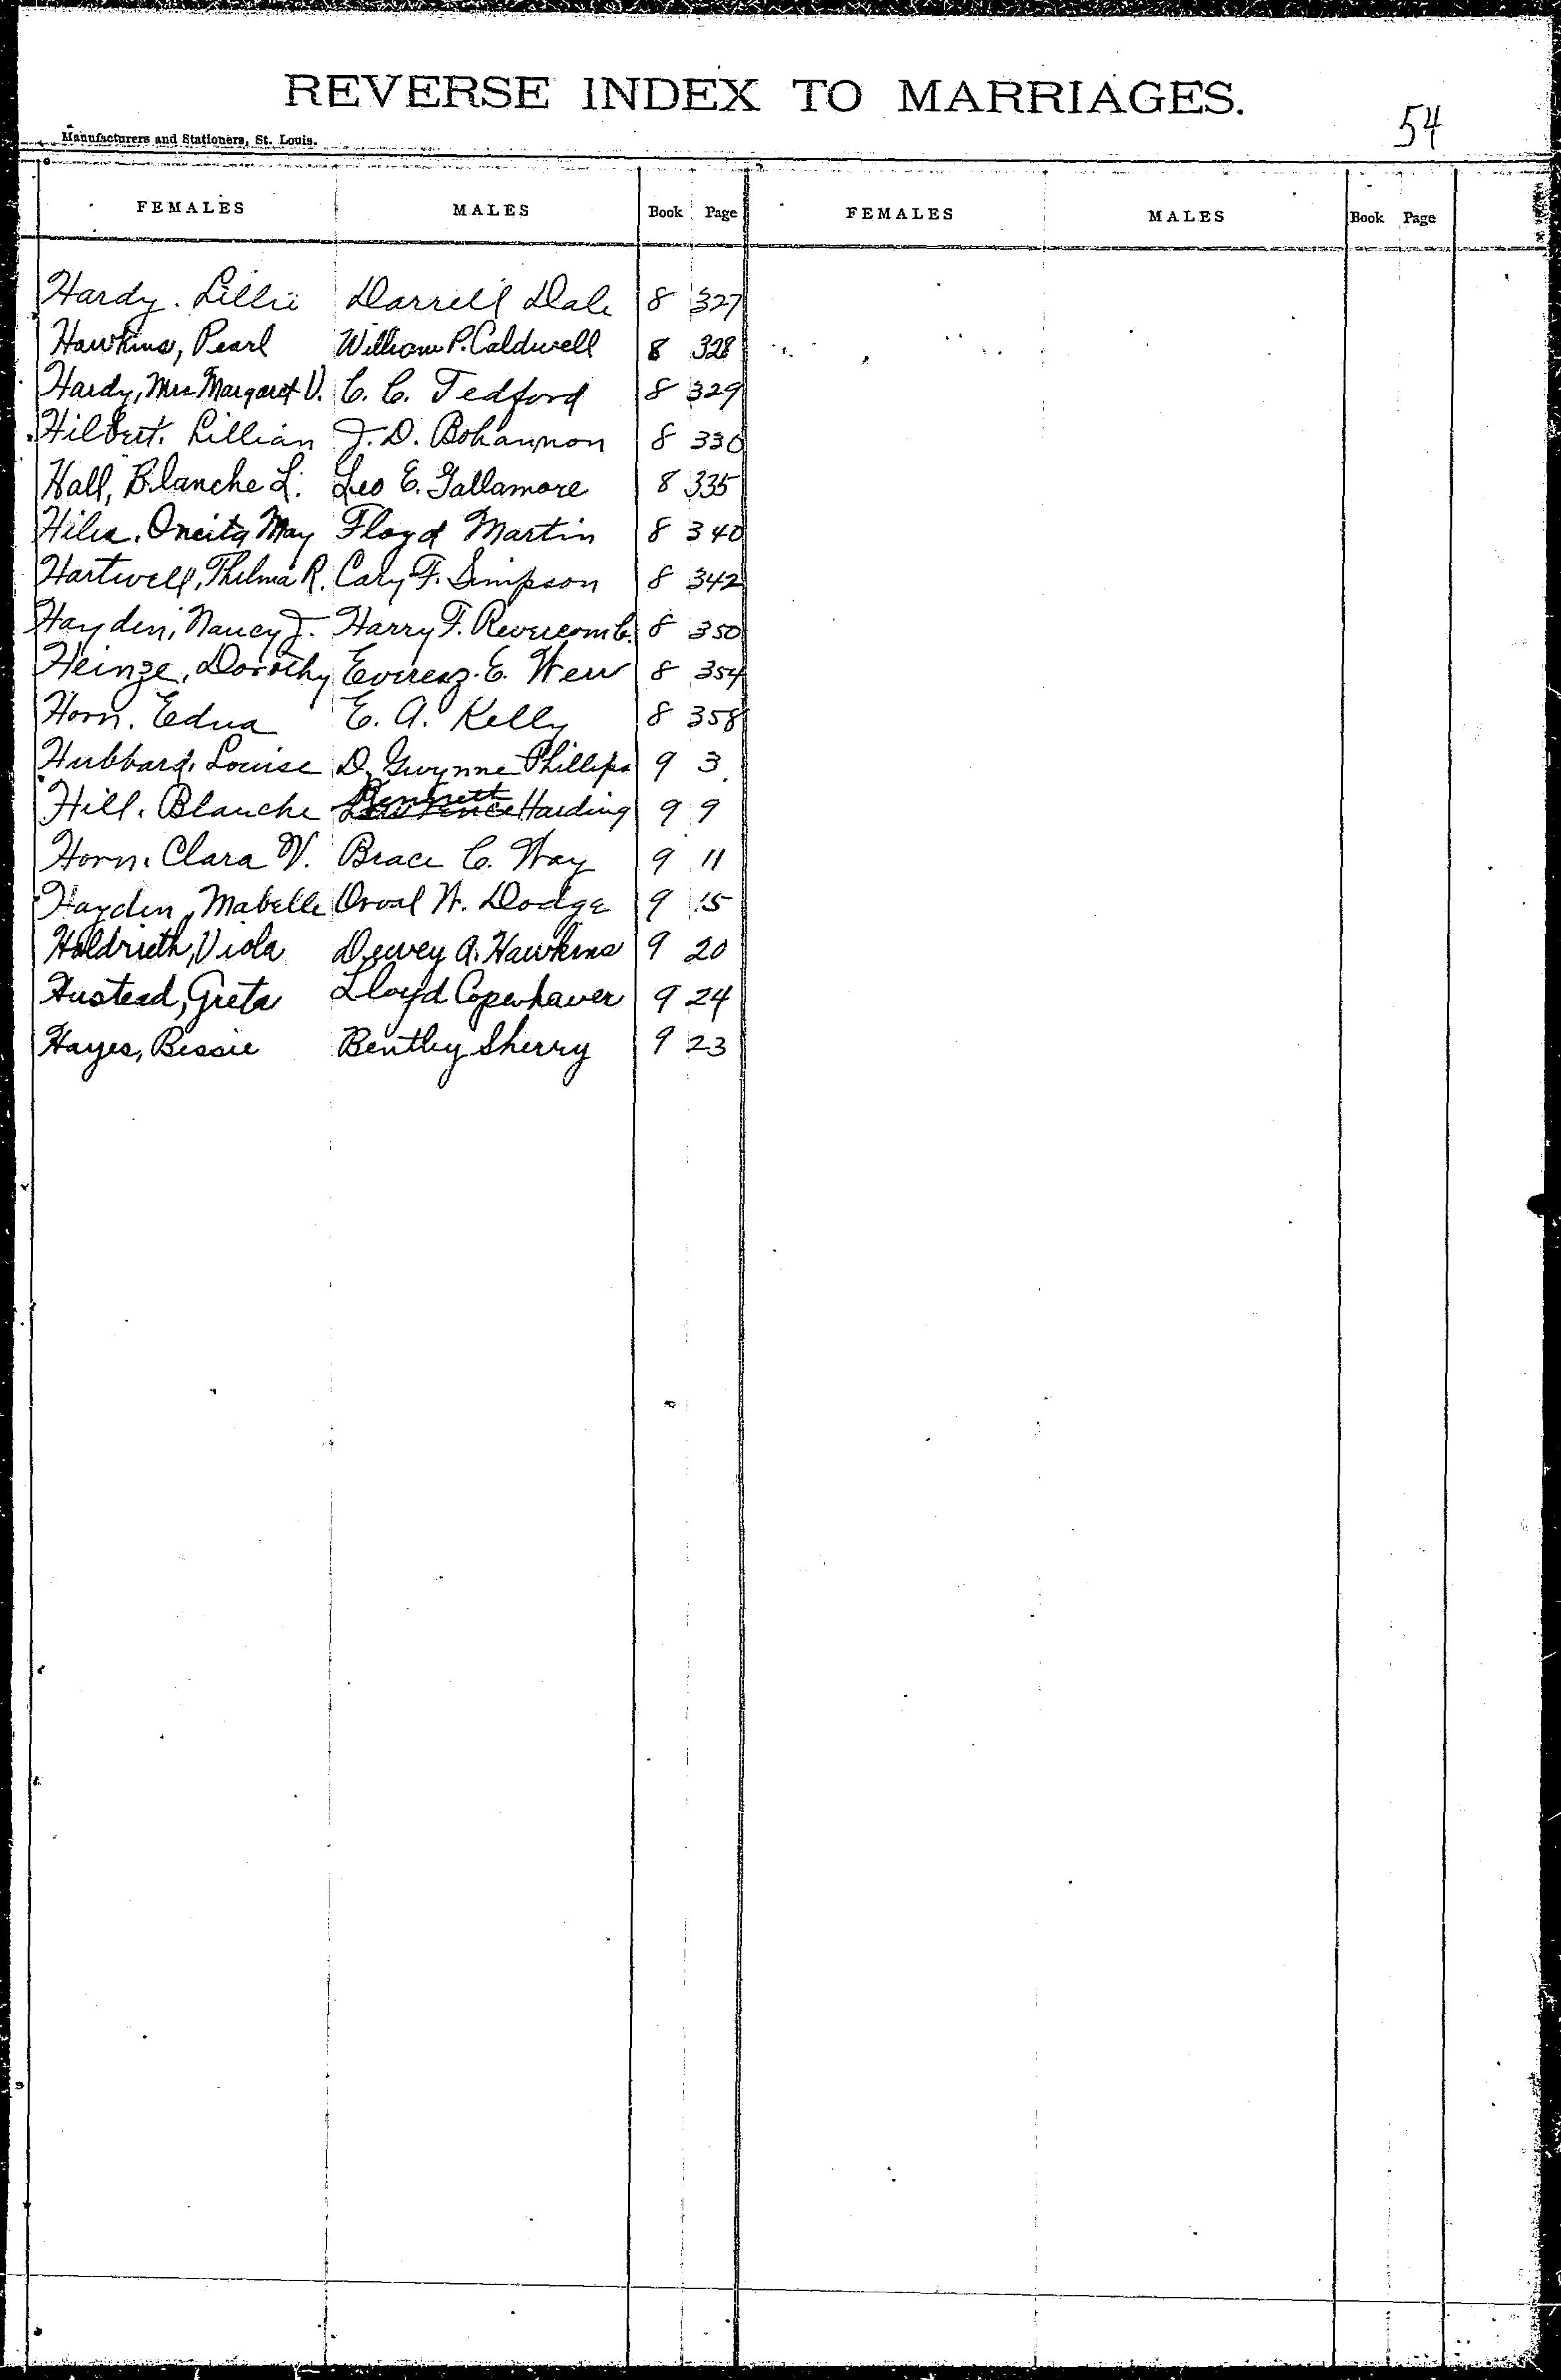 REVERSE INDEX TO MARRIAGES.
54
Manufacturers and Stationers, St. Louis.
FEMALES MALES Book Page FEMALES MALES Book Page
Hardy. Lillie Darrell Dale 8 327
Hawkins, Pearl William P. Caldwell 8 328
Hardy, Mrs Margaret V. C. C. Tedford 8 329
Hilbert. Lillian J. D. Bohannon 8 330
Hall, Blanche L. Leo E. Gallamore 8 335
Hiles. Oneita May Floyd Martin 8 340
Hartwell, Thelma R. Cary F. Simpson 8 342
Hayden, Nancy J. Harry F. Revercomb. 8 350
Heinze, Dorothy E. 8 354
Horn. Edna E. A. Kelly 8 358
Hubbard. Louise D. Gwynne Phillips 9 3
Hill. Blanche Bennett Lawrence Harding 9 9
Horn. Clara V. Brace C. Way 9 11
Hayden, Mabelle Orval W. Dodge 9 15
Holdrieth, Viola Dewey A. Hawkins 9 20
Hustead, Greta Lloyd Copenhaver 9 24
Hayes, Bessie Bentley Sherry 9 23